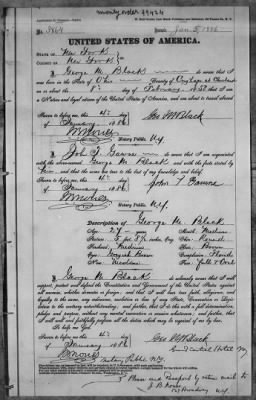 money order 79424
No. 3864 Issued Jan. 5 1886
UNITED STATES OF AMERICA.
STATE OF New York
COUNTY OF New York
I, George M. Black do swear that I
was born in the State of Ohio County of Cuyhaga at Cleveland
on or about the 8th day of February, 1858 that I am
a Native and loyal citizen of the United States of America, and am about to travel abroad
Sworn to before me, this 4th day
of January 1886
Geo M Black
Notary Public N.Y.
I, John T. do swear that I am acquainted
with the above-named George M. Black and with the facts stated by
him, and that the same are true to the best of my knowledge and belief.
Sworn to before me, this 4th day
of January 1886
John T
Notary Public N.Y.
Description of George M. Black
Age: 27 years Mouth: Medium
Stature: 5 feet inches, Eng. Chin: Round
Forehead: Medium Hair: Brown
Eyes: Brown Complexion: Florid
Nose: Medium Face: Full & Oval
I, George M. Black do solemnly swear that I will
support, protect and defend the Constitution and Government of the United States against
all enemies, whether domestic or foreign; and that I will bear true faith, allegiance, and
loyalty to the same, any ordinance, resolution or law of any State, Convention or Legis-
lature to the contrary notwithstanding; and further, that I do this with a full determination,
pledge and purpose, without any mental reservation or evasion whatsoever; and further, that
I will well and faithfully perform all the duties which may be required of me by law.
So help me God.
Sworn to before me, this 4th day
of January 1886
Geo M Black
Grand Central Hotel N.Y.
Notary Public N.Y.
Please send Passport by return mail to
Broadway N.Y.